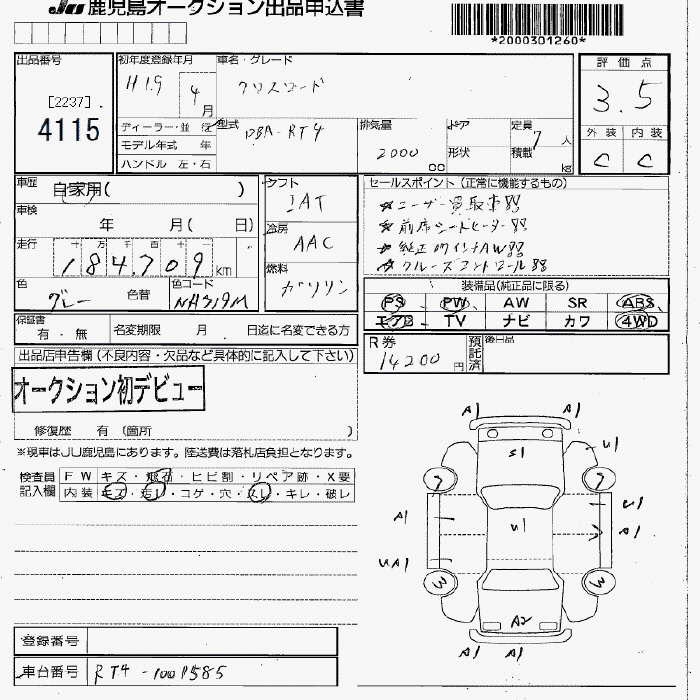 JU 鹿児島オークション出品申込書
*2000301260*
出品番号
[2237]
4115
初年度登録年月
H19 4月
車名・グレード
クロスロード
評価点
3.5
ディーラー・並 行
モデル年式 年
ハンドル 左・右
型式
DBA-RT4
排気量
2000
cc
ドア
形状
定員
7人
積載
kg
外装 内装
C C
車歴
自家用( )
車検
年 月( 日)
走行
十 万 千 百 十 一
184,709 km
色
グレー
色替
色コード
NH319M
シフト
IAT
冷房
AAC
燃料
ガソリン
セールスポイント(正常に機能するもの)
☆ユーザー買取車!!
☆前席シートヒーター!!
☆クルーズコントロール!!
装備品(純正品に限る)
PS PW AW SR ABS
エアB TV ナビ カワ 4WD
保証書
有・無
名変期限 月 日迄に名変できる方
R券
14200円
預託済
後日品
出品店申告欄(不良内容・欠品など具体的に記入して下さい)
オークション初デビュー
修復歴 有(箇所 )
※現車はJU鹿児島にあります。陸送費は落札店負担となります。
検査員
記入欄
FW キズ・飛石・ヒビ割・リペア跡・X要
内装 キズ・汚レ・コゲ・穴・スレ・キレ・破レ
A1 A1
S1 U1
7 7
A1 U1 U1
A1
UA1
3 3
A2
A1 A1
登録番号
車台番号
RT4-1001585